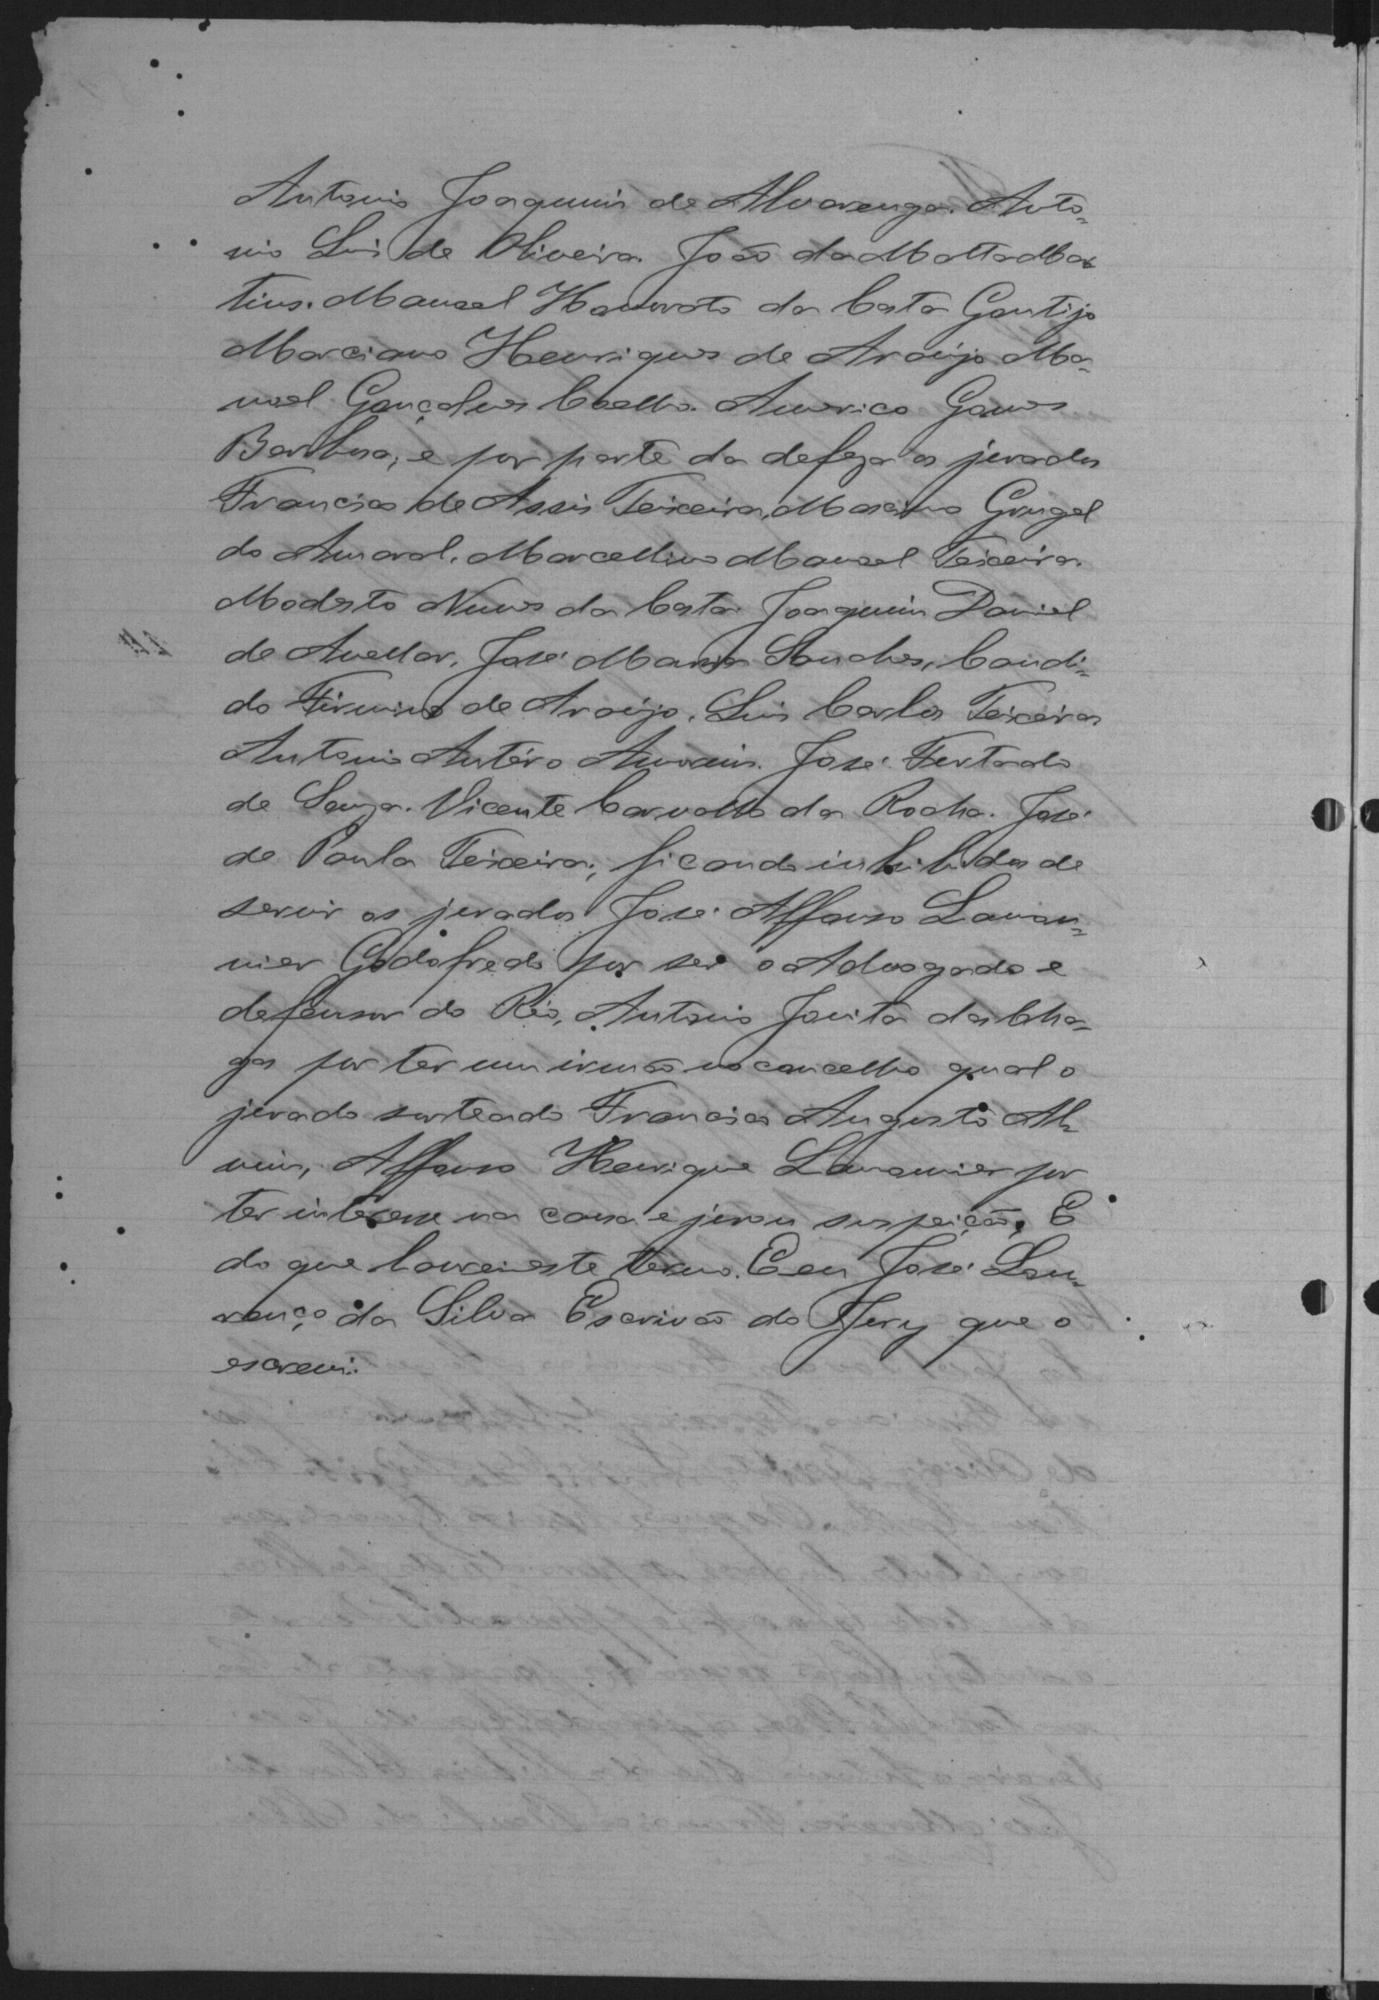 Antonio Joaquim de Alvarenga. Anto-
nio Luis de Oliveira. João da Matta Mar
tins. Manoel Honorato da Costa Gontijo
Marciano Henriques de Araújo Ma-
noel Gonçalves Coelho. Americo Gomes
Barbosa, e por parte da defeza os jurados
Francisco de Assis Teixeira, Gurgel
do Amaral. Marcellino Manoel Teixeira.
Modesto Nunes da Costa. Joaquim Daniel
de Avellar, José Maria Sanches, Candi-
do Firmino de Araújo. Luis Carlos Teixeira
Antonio Antéro Amorim. José Furtado
de Souza. Vicente Carvalho da Rocha. José
de Paula Teixeira; ficando inhibidos de
servir os jurados José Affonso Lamou-
nier Godofredo por ser o Advogado e
defensor do Réo, Antonio das Cha-
gas por ter um irmão no concelho qual o
jurado sorteado Francisco Augusto Al-
vim, Affonso Henrique Lamounier por
ter interesse na causa e jurou suspeição. E
do que lavrei este termo. E eu José Lou-
renço da Silva Escrivão do Jury que o
escrevi.